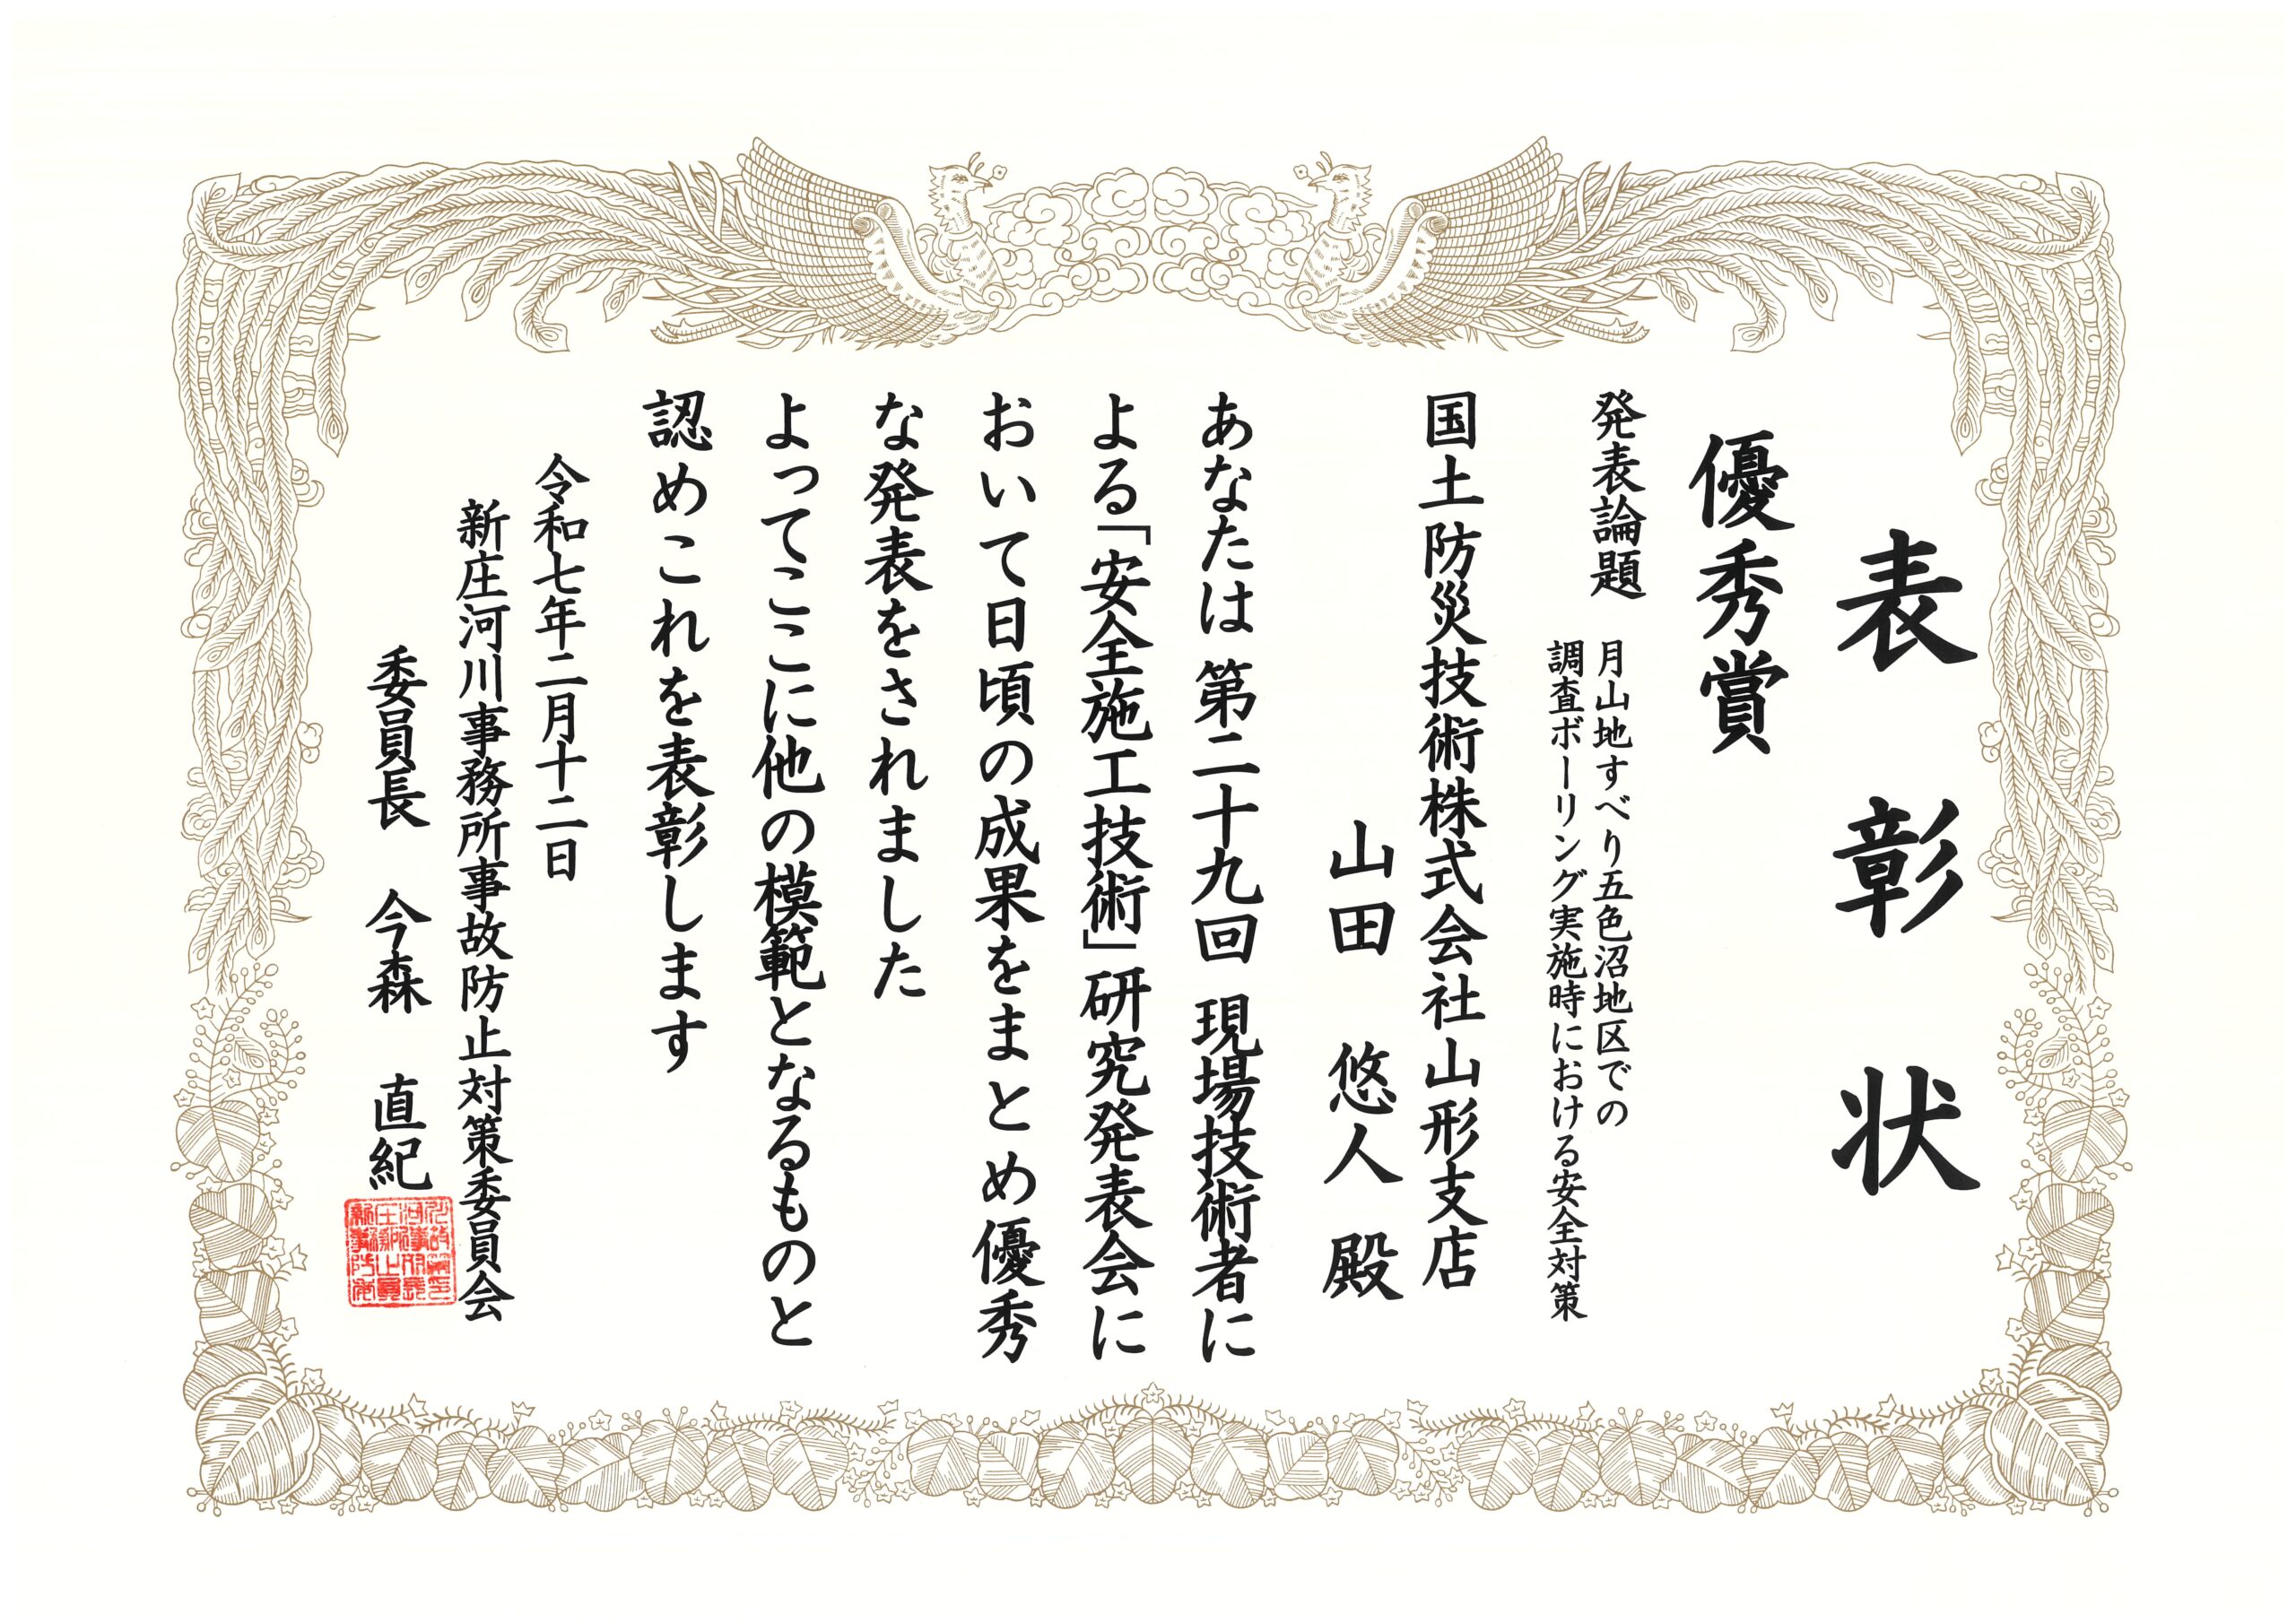 表彰状
優秀賞
発表論題 月山地すべり五色沼地区での
調査ボーリング実施時における安全対策
国土防災技術株式会社山形支店
山田 悠人 殿
あなたは 第二十九回 現場技術者に
よる「安全施工技術」研究発表会に
おいて日頃の成果をまとめ優秀
な発表をされました
よってここに他の模範となるものと
認めこれを表彰します
令和七年二月十二日
新庄河川事務所事故防止対策委員会
委員長 今森 直紀